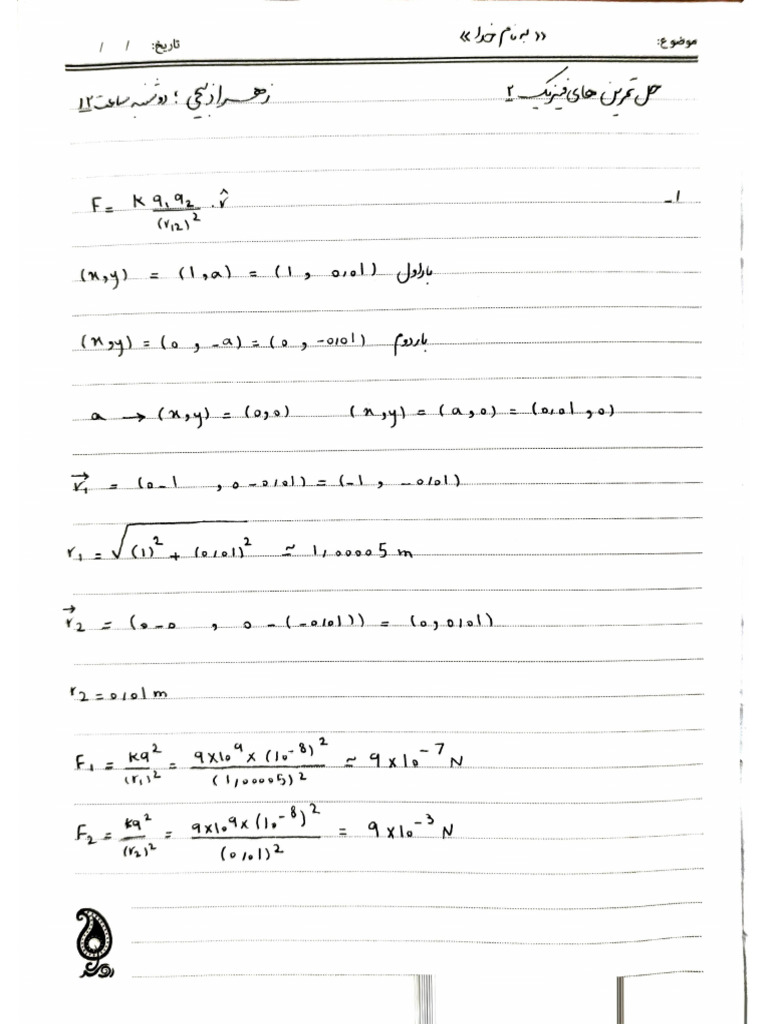 موضوع: «به نام خدا» تاریخ: / /
حل تمرین های فیزیک ۲ دوشنبه ساعت ۱۲
۱-
F = K q₁q₂/(r₁₂)² . r̂
(x,y) = (1,a) = (1, 0/01) بار اول
(x,y) = (0, -a) = (0, -0/01) بار دوم
a → (x,y) = (0,0) (x,y) = (a,0) = (0/01,0)
r⃗₁ = (0-1, 0-0/01) = (-1, -0/01)
r₁ = √((1)² + (0/01)²) ≃ 1,00005 m
r⃗₂ = (0-0, 0-(-0/01)) = (0, 0/01)
r₂ = 0/01 m
F₁ = Kq²/(r₁)² = 9×10⁹×(10⁻⁸)²/(1,00005)² ≃ 9×10⁻⁷ N
F₂ = Kq²/(r₂)² = 9×10⁹×(10⁻⁸)²/(0/01)² = 9×10⁻³ N